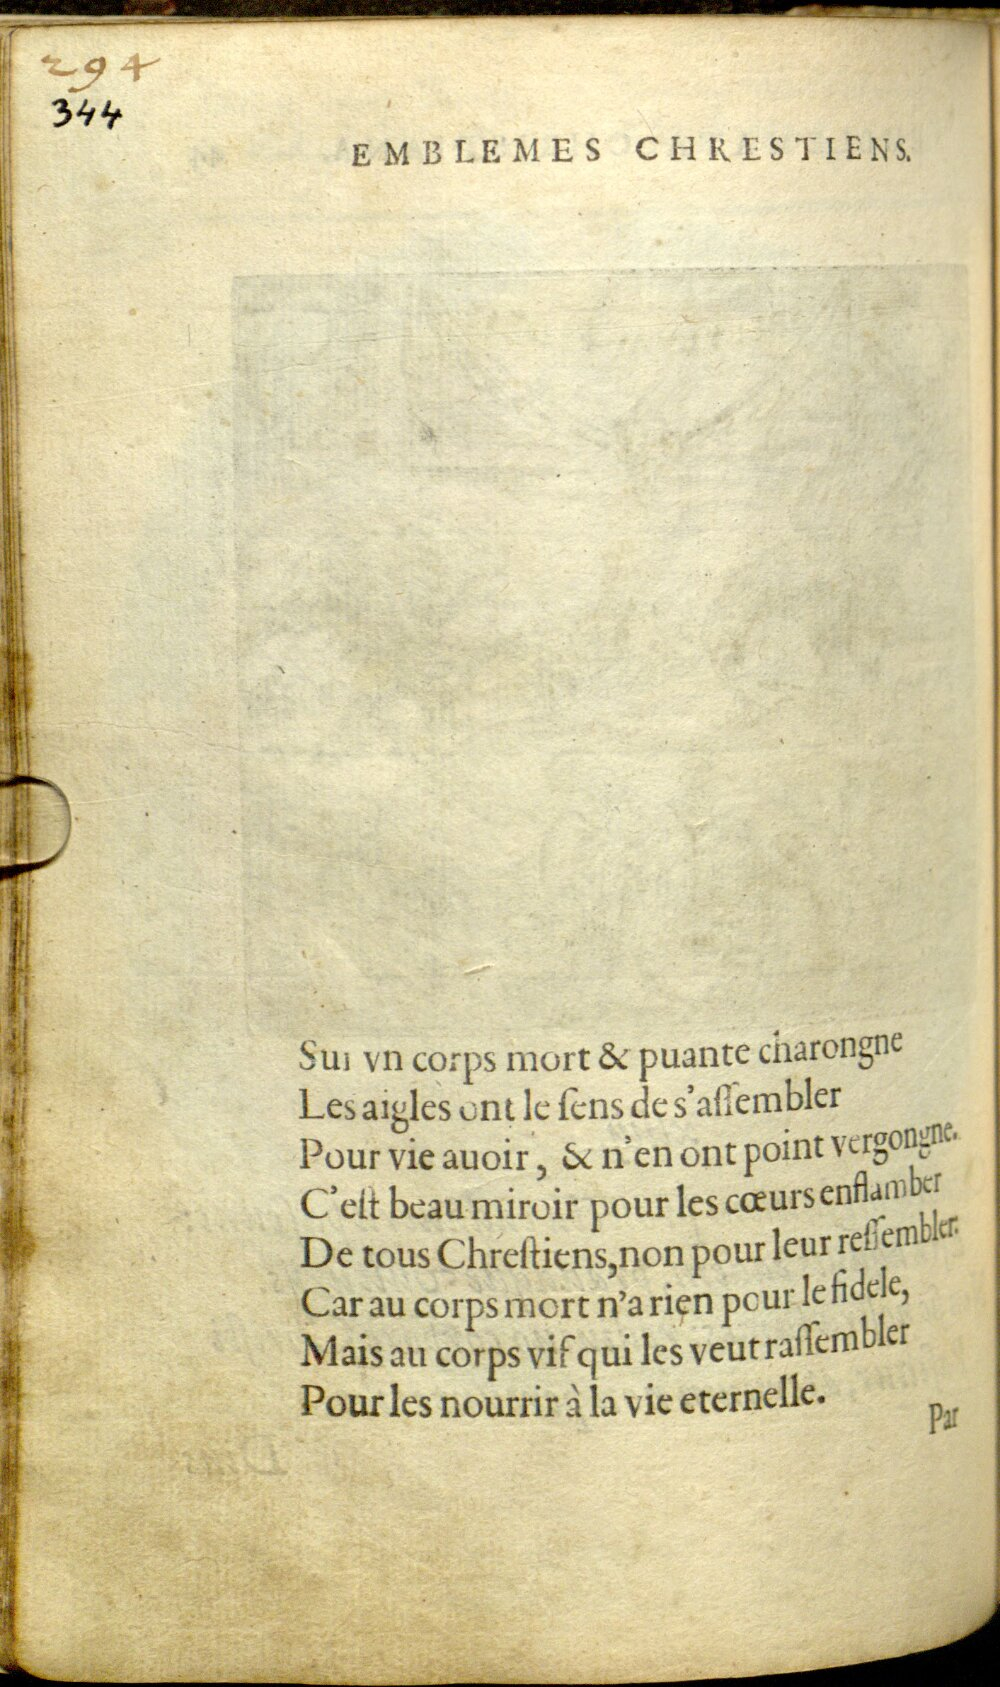 294
344
EMBLEMES CHRESTIENS.
Sur vn corps mort & puante charongne
Les aigles ont le ſens de s'aſſembler
Pour vie auoir, & n'en ont point vergongne.
C'eſt beau miroir pour les cœurs enflamber
De tous Chreſtiens, non pour leur reſſembler.
Car au corps mort n'a rien pour le fidele,
Mais au corps vif qui les veut raſſembler
Pour les nourrir à la vie eternelle.
Par